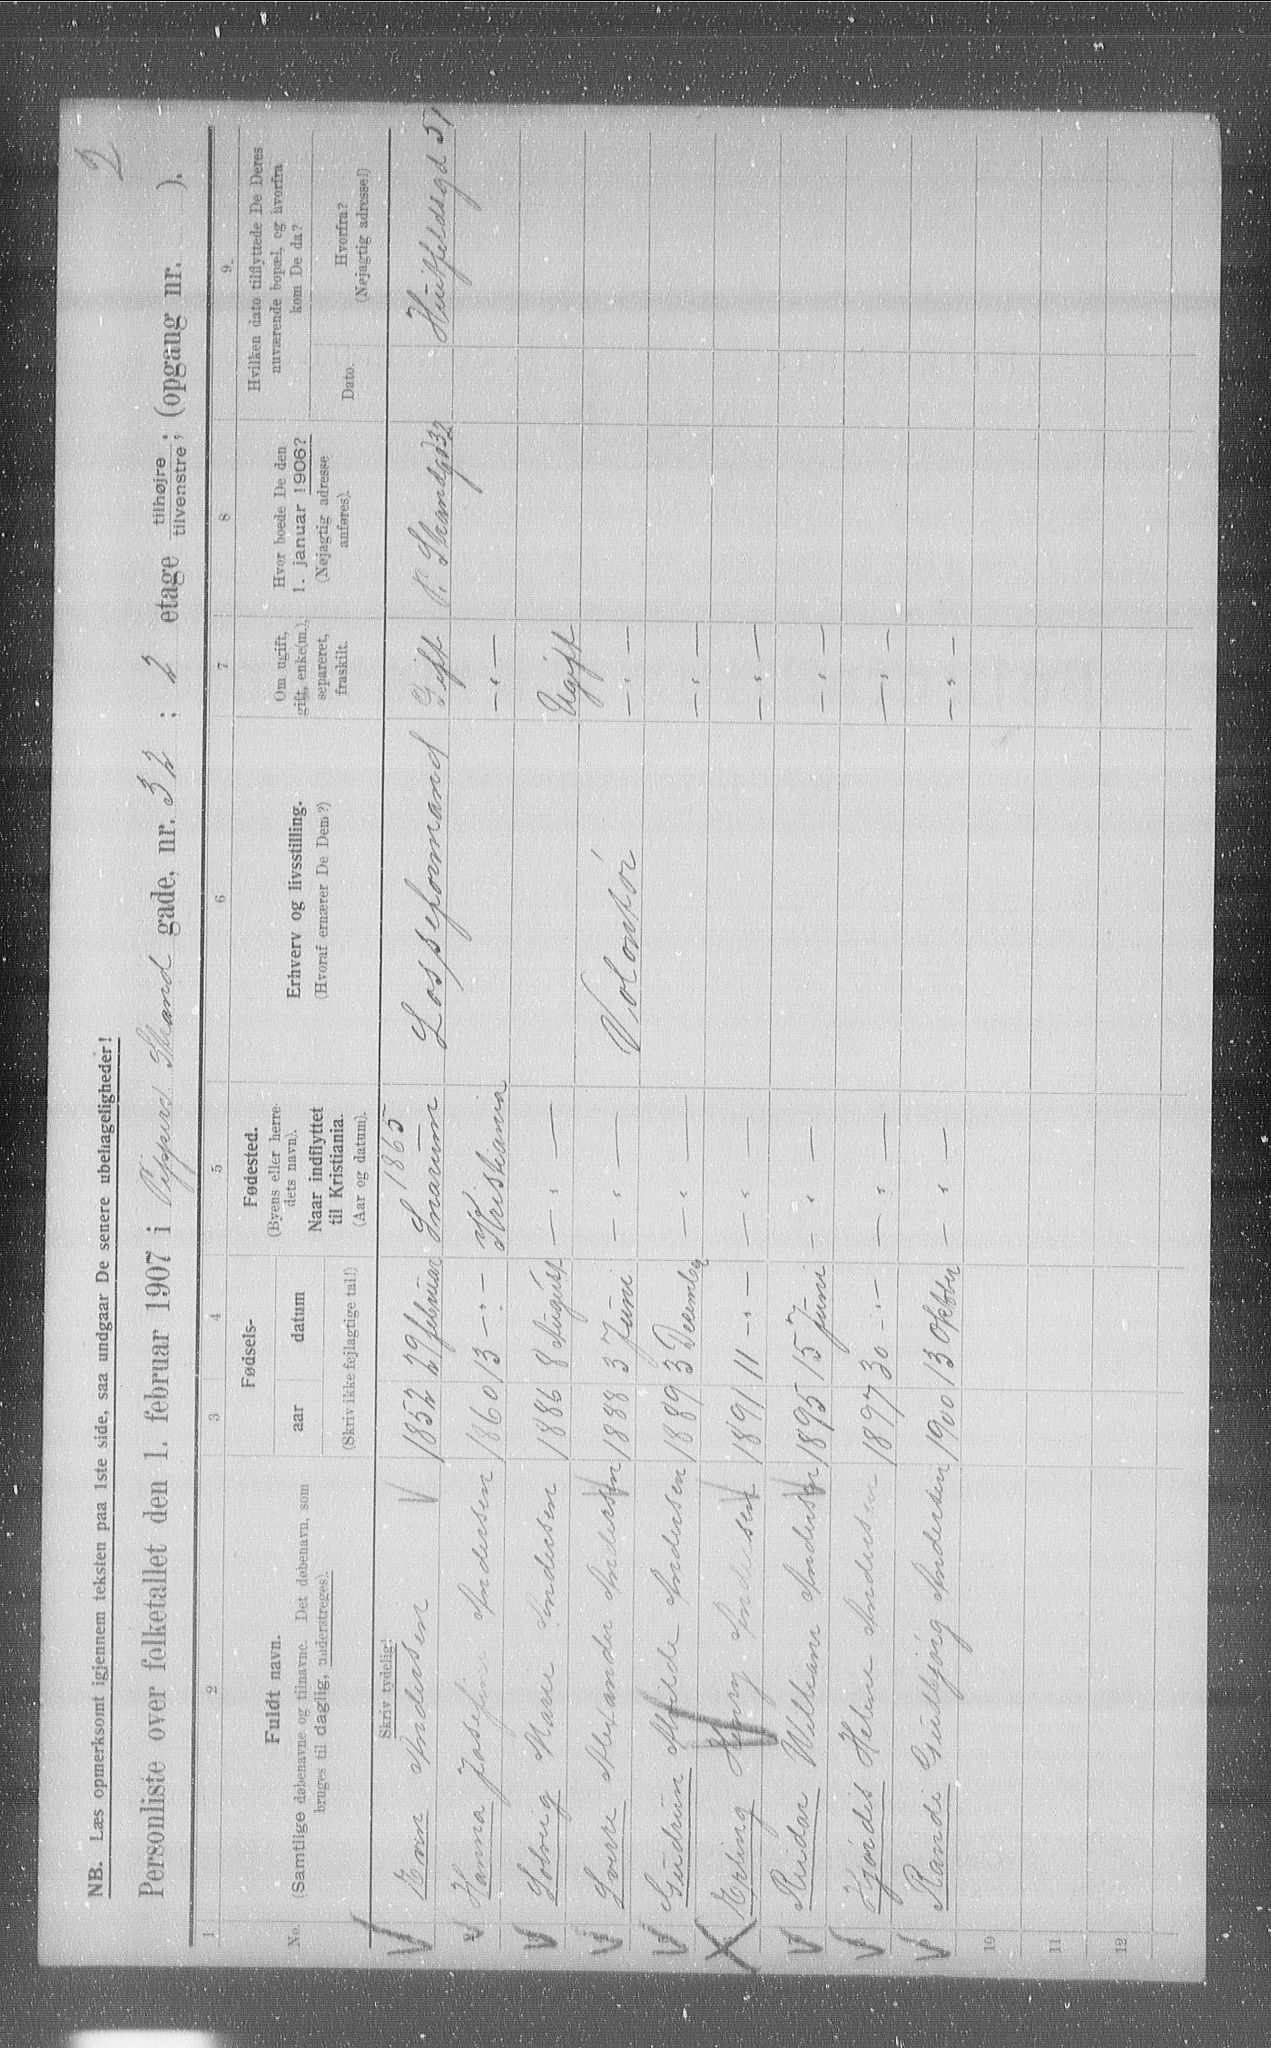 2
NB. Læs opmerksomt igjennem teksten paa 1ste side, saa undgaar De senere ubehageligheder!
Personliste over folketallet den 1. februar 1907 i Pippervi Strand gade, nr. 32 ; 2 etage tilhøjre tilvenstre; (opgang nr. ).
1 2 3 4 5 6 7 8 9.
No.
Fuldt navn.
(Samtlige døbenavne og tilnavne. Det døbenavn, som
bruges til daglig, understreges).
Fødsels-
aar datum
(Skriv ikke fejlagtige tal!)
Fødested.
(Byens eller herre-
dets navn).
Naar indflyttet
til Kristiania.
(Aar og datum).
Erhverv og livsstilling.
(Hvoraf ernærer De Dem?)
Om ugift,
gift, enke(m.),
separeret,
fraskilt.
Hvor boede De den
1. januar 1906?
(Nøjagtig adresse
anføres).
Hvilken dato tilflyttede De Deres
nuværende bopæl, og hvorfra
kom De da?
Dato.
Hvorfra?
(Nøjagtig adresse!)
Skriv tydelig!
1865
Andersen 1852 29 februar Snarum Losseformand Gift P. Strandgd 32 Huitfeldsgd 51
2 Hanna Josefine Andersen 1860 13 -„- Kristiania -„-
Solveig Marie Andersen 1886 8 August -„- Ugift
Sverre Alexander Andersen 1888 3 Juni -„- Volontør -„-
Gudrun Alfilde Andersen 1889 3 December -„- -„-
Erling Henry Andersen 1891 11 -„- -„- -„-
Reidar William Andersen 1895 15 Juni -„- -„-
Hjørdis Helene Andersen 1897 30 -„- -„- -„-
Randi Gudbjørg Andersen 1900 13 Oktber -„- -„-
10
11
12